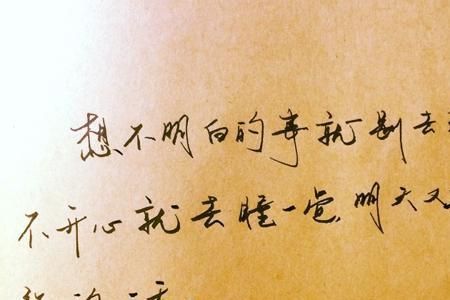 想不明白的事就别去
不开心就去睡一觉,明天又